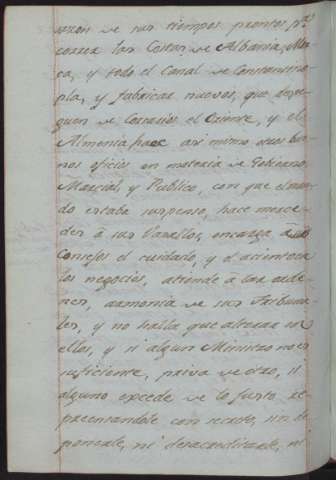 razon de sus tiempos prontos pᵃ
correr las Costas de Albania, 
ca, y todo el Canal de Constantino-
pla, y fabricar nuevos, que 
guen de Cosarios el Oriente, y el
Almenia, hace asi mismo otros bue-
nos oficios en materia de Gobierno
Marcial, y Publico, con que el mun-
do estaba suspenso, hace merce-
des à sus Vasallos, encarga à sus
Consejos el cuidado, y el acierto en
los negocios, atiende à las orde-
nes, armonia de sus Tribuna-
les, y no halla que alterar en
ellos, y si algun Ministro no es
suficiente, priva de otro, si
alguno excede de lo justo, re
preendiendole con secreto, sin de
ponerle, ni desacreditarle, ni